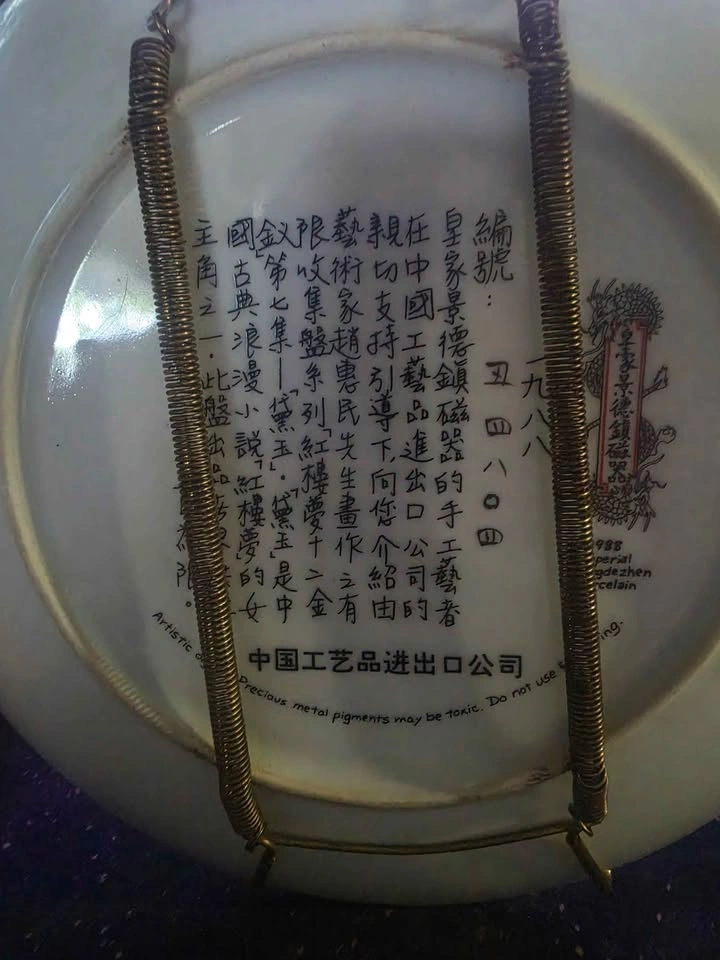 編號:
四八〇四
一九八八
皇家景德鎮磁器的手工藝者
在中國工藝品進出口公司的
親切支持引導下向您介紹由
藝術家趙惠民先生畫作之有
限收集盤系列「紅樓夢十二金
釵」第七集—「黛玉」.「黛玉」是中
國古典浪漫小說「紅樓夢」的女
主角之一.此盤出品 限。
皇家景德鎮磁器
988
perial
gdezhen
rcelain
中国工艺品进出口公司
Artistic Precious metal pigments may be toxic. Do not use ing.